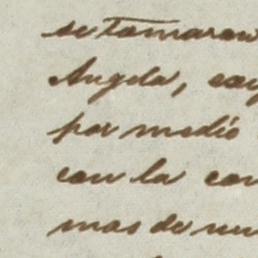 se tomaron
Angela, cay
por medio
con la con
mas de un